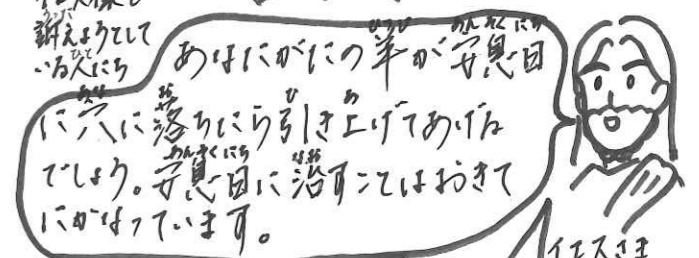 訴えようとして
いる人たち
あなたがたの羊が安息日
に穴に落ちたら引き上げてあげる
でしょう。安息日に治すことはおきて
にかなっています。
イエスさま